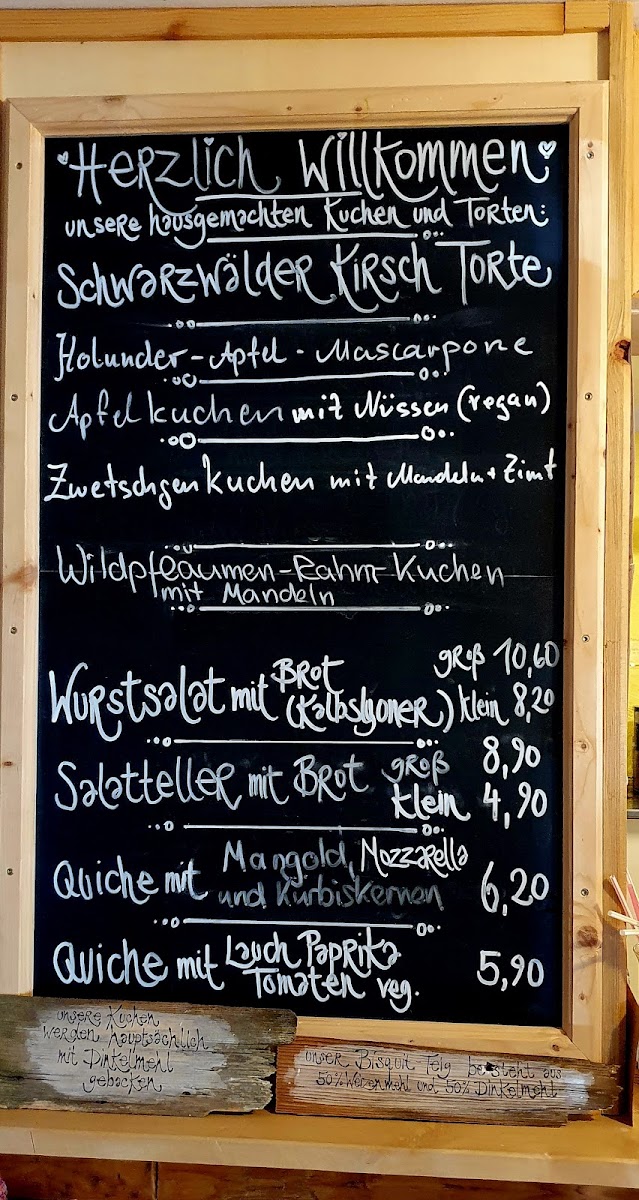 Herzlich Willkommen
unsere hausgemachten Kuchen und Torten:
Schwarzwälder Kirsch Torte
Holunder-Apfel-Mascarpone
Apfelkuchen mit Nüssen (vegan)
Zwetschgenkuchen mit Mandeln + Zimt
Wildpflaumen-Rahm-Kuchen
mit Mandeln
Wurstsalat mit Brot groß 10,60
(Kalbslyoner) klein 8,20
Salatteller mit Brot groß 8,90
klein 4,90
Quiche mit Mangold, Mozzarella
und Kürbiskernen 6,20
Quiche mit Lauch Paprika
Tomaten veg. 5,90
unsere Kuchen
werden hauptsächlich
mit Dinkelmehl
gebacken
unser Bisquit Teig besteht aus
50% Weizenmehl und 50% Dinkelmehl